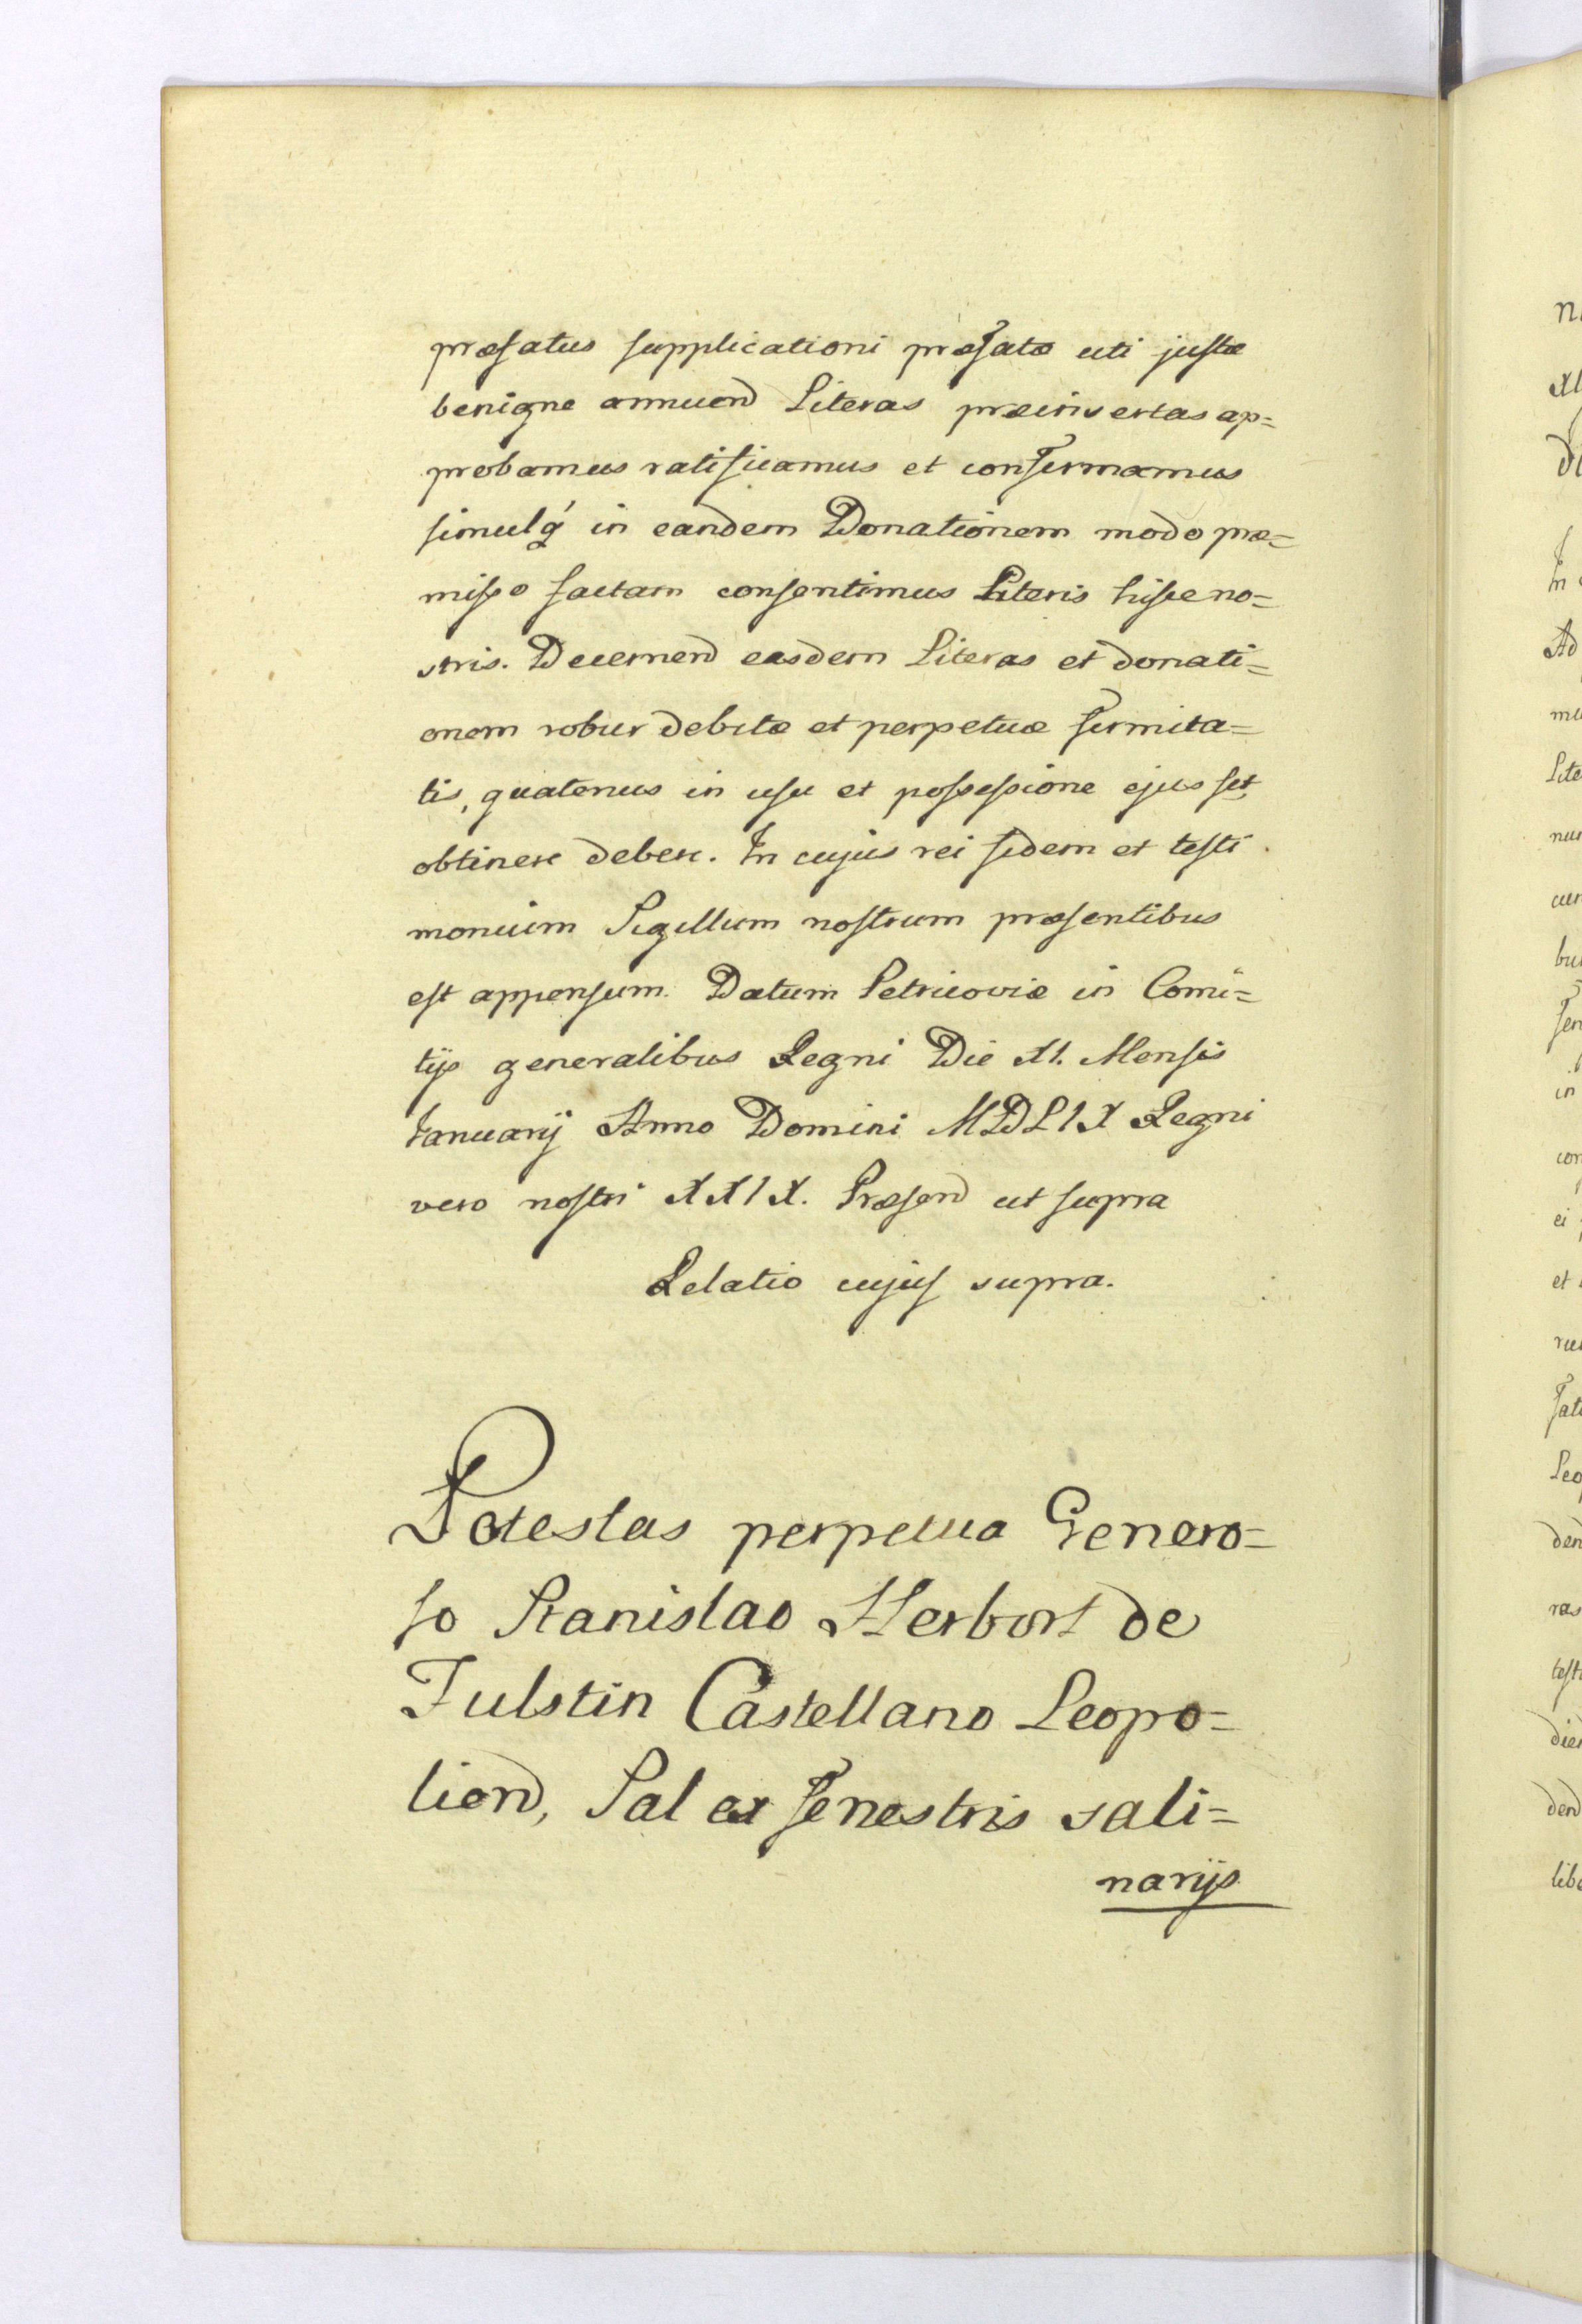 præfatus supplicationi præfatæ uti justæ
benigne annuend Literas præinsertas ap=
probamus ratificamus et confirmamus
simulq́ in eandem Donationem modo præ=
misso factam consentimus Literis hisce no=
stris. Decernend easdem Literas et donati=
onem robur debitæ et perpetuæ firmita=
tis, quatenus in usu et possessione ejus sit,
obtinere debere. In cujus rei fidem et testi
monium Sigillum nostrum præsentibus
est appensum. Datum Petricoviæ in Comi=
tijs generalibus Regni Die XI. Mensis
Januarij Anno Domini MDLIX Regni
vero nostri XXIX. Præsend ut supra
Relatio cujus supra.
Potestas perpetua Genero=
so Stanislao Herbort de
Fulstin Castellano Leopo=
liend, Sal ex fenestris sali=
narijs